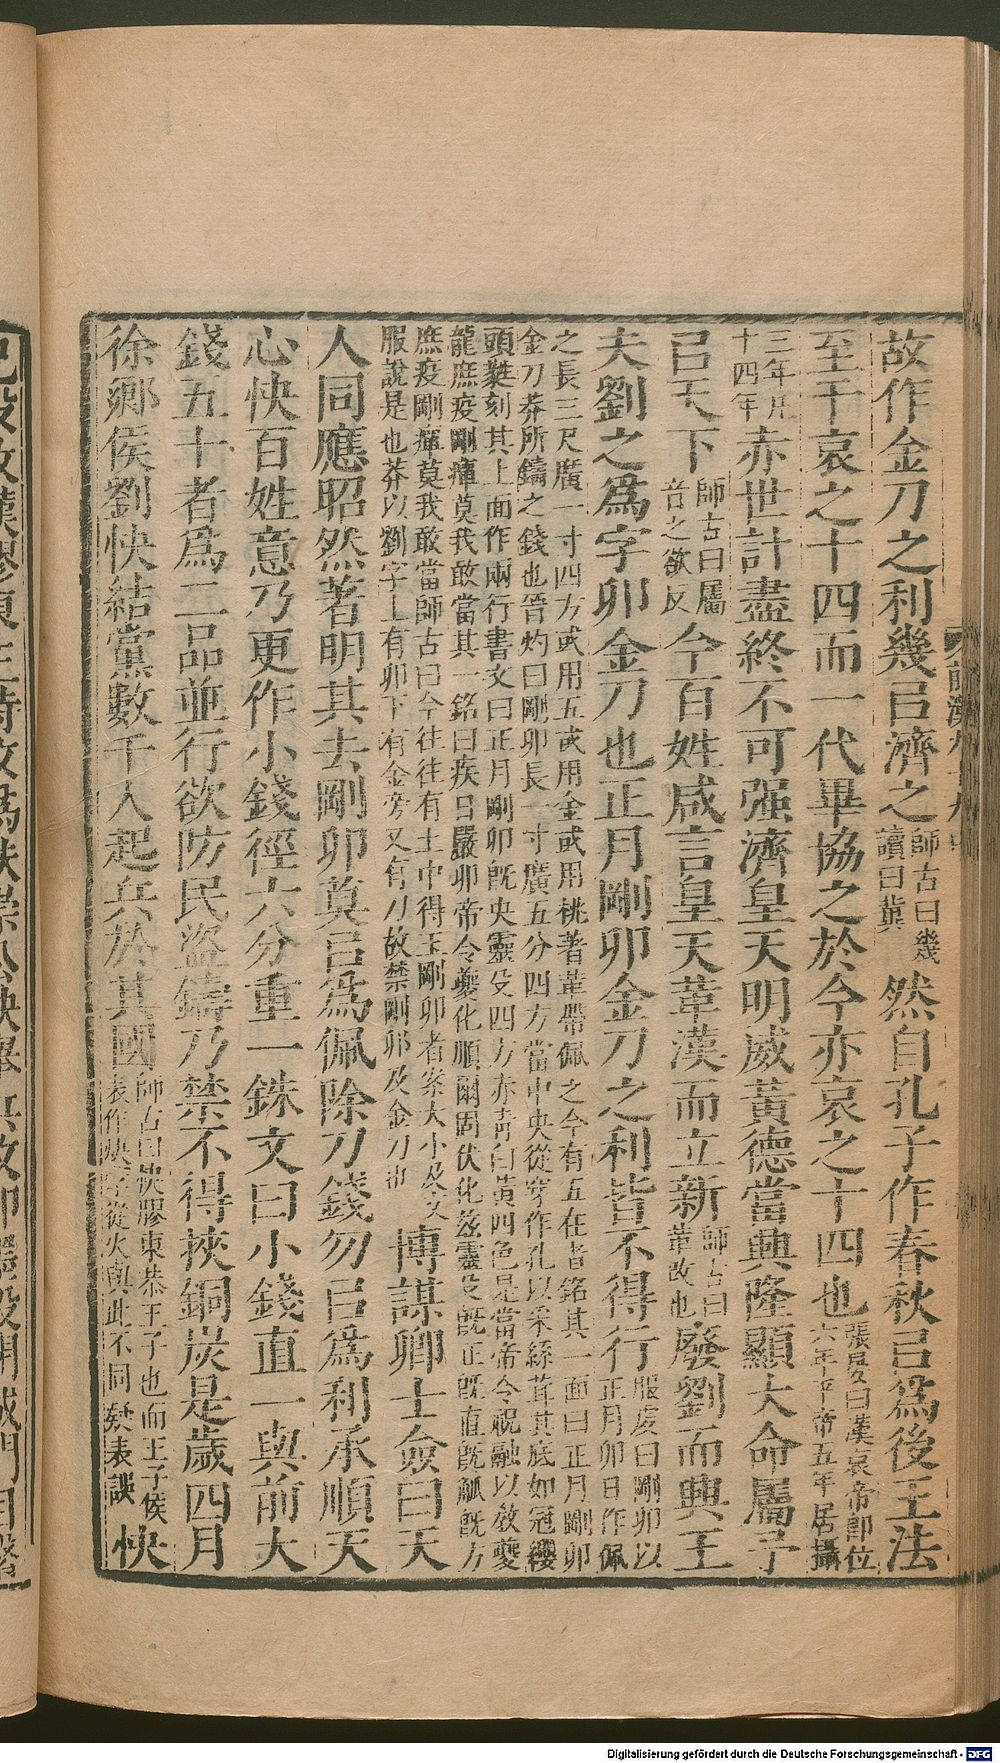 故作金刀之利幾㠯濟之師古曰幾讀曰冀然自孔子作春秋㠯爲後王法
至于哀之十四而一代畢協之於今亦哀之十四也張晏曰漢哀帝即位六年平帝五年居攝
三年凡十四年赤世計盡終不可强濟皇天明威黃德當興隆顯大命屬予
㠯天下師古曰屬音之欲反今百姓咸言皇天革漢而立新師古曰革改也廢劉而興王
夫劉之爲字卯金刀也正月剛卯金刀之利皆不得行服虔曰剛卯以正月卯日作佩
之長三尺廣一寸四方或用五或用金或用桃著革帶佩之今有五在者銘其一面曰正月剛卯
金刀莽所鑄之錢也晉灼曰剛卯長一寸廣五分四方當中央從穿作孔以采絲葺其底如冠纓
頭蕤刻其上面作兩行書文曰正月剛卯旣央靈殳四方赤青白黃四色是當帝令祝融以敎夔
龍庶疫剛癉莫我敢當其一銘曰疾日嚴卯帝令夔化順爾固伏化茲靈殳旣正旣直旣觚旣方
庶疫剛癉莫我敢當師古曰今往往有土中得玉剛卯者案大小及文
服說是也莽以劉字上有卯下有金旁又有刀故禁剛卯及金刀也
博謀卿士僉曰天
人同應昭然著明其去剛卯莫㠯爲佩除刀錢勿㠯爲利承順天
心快百姓意乃更作小錢徑六分重一銖文曰小錢直一與前大
錢五十者爲二品並行欲防民盜鑄乃禁不得挾銅炭是歲四月
徐鄉侯劉快結黨數千人起兵於其國師古曰快膠東恭王子也而王子侯表作炔字從火與此不同疑表誤快
Digitalisierung gefördert durch die Deutsche Forschungsgemeinschaft - DFG